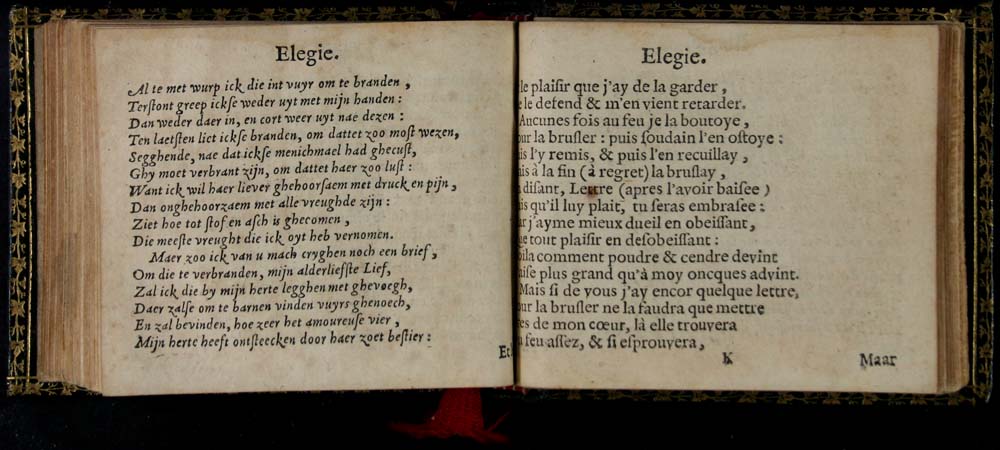 Elegie.
Al te met wurp ick die int vuyr om te branden ,
Terſtont greep ickſe weder uyt met mijn handen :
Dan weder daer in, en cort weer uyt nae dezen :
Ten laetſten liet ickſe branden, om dattet zoo moſt wezen,
Segghende, nae dat ickſe menichmael had ghecuſt,
Ghy moet verbrant zijn, om dattet haer zoo luſt :
Want ick wil haer liever ghehoorſaem met druck en pijn,
Dan onghehoorzaem met alle vreughde zijn :
Ziet hoe tot ſtof en aſch is ghecomen ,
Die meeſte vreught die ick oyt heb vernomen.
Maer zoo ick van u mach cryghen noch een brief,
Om die te verbranden, mijn alderliefſte Lief,
Zal ick die by mijn herte legghen met ghevoegh,
Daer zalſe om te barnen vinden vuyrs ghenoech,
En zal bevinden, hoe zeer het amoureuſe vier ,
Mijn herte heeft ontſteecken door haer zoet beſtier :
Elegie.
le plaiſir que j'ay de la garder ,
le defend & m'en vient retarder.
Aucunes fois au feu je la boutoye ,
ur la bruſler : puis ſoudain l'en oſtoye :
is l'y remis, & puis l'en recuillay ,
is à la fin (à regret) la bruſlay ,
diſant, Lettre (apres l'avoir baiſee )
is qu'il luy plait, tu ſeras embraſee :
r j'ayme mieux dueil en obeiſſant,
e tout plaiſir en deſobeiſſant :
ila comment poudre & cendre devint
aiſe plus grand qu'à moy oncques advint.
Mais ſi de vous j'ay encor quelque lettre,
ur la bruſler ne la faudra que mettre
es de mon cœur, là elle trouvera
feu aſſez, & ſi eſprouvera,
K Maar